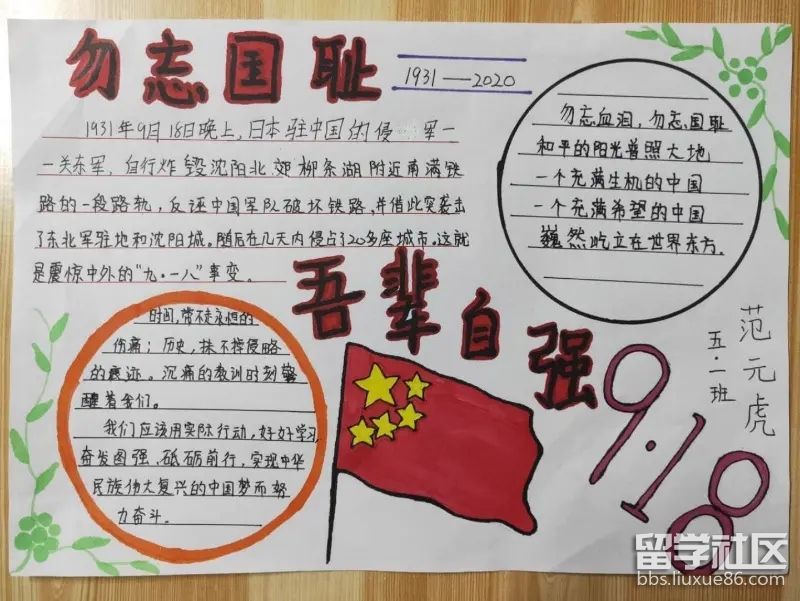 勿志国耻
1931—2020
1931年9月18日晚上，日本驻中国的侵 军一
一关东军，自行炸毁沈阳北郊柳条湖附近南满铁
路的一段路轨，反诬中国军队破坏铁路，并借此突袭击
了东北军驻地和沈阳城。随后在几天内侵占了20多座城市。这就
是震惊中外的“九·一八”事变。
勿忘血泪，勿忘国耻
和平的阳光普照大地
一个充满生机的中国
一个充满希望的中国
巍然屹立在世界东方。
吾辈自强
时间，带不走永恒的
伤痛；历史，抹不掉侵略
的痕迹。沉痛的教训时刻警
醒着我们。
我们应该用实际行动，好好学习，
奋发图强、砥砺前行，实现中华
民族伟大复兴的中国梦而努
力奋斗。
范元虎
五·一班
9·18
留学社区
bbs.liuxue86.com